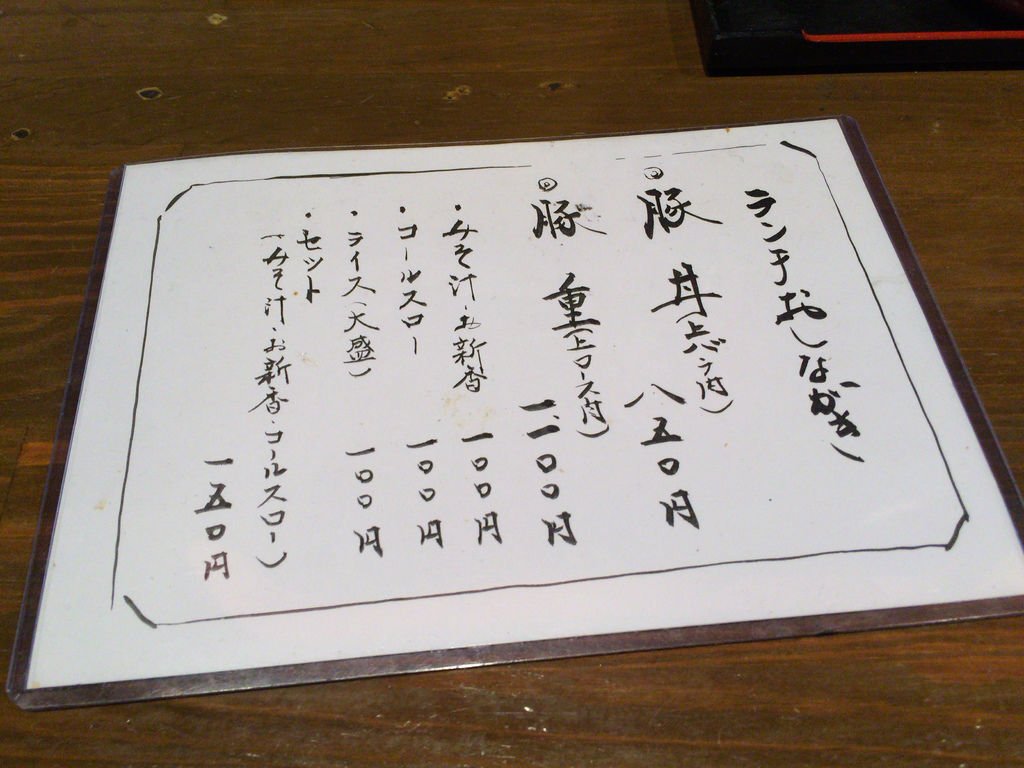 ランチおしながき
◎豚丼(上バラ肉) 八五〇円
◎豚重(上ロース肉) 一、一〇〇円
・みそ汁・お新香 一〇〇円
・コールスロー 一〇〇円
・ライス(大盛) 一〇〇円
・セット
(みそ汁・お新香・コールスロー)
一五〇円